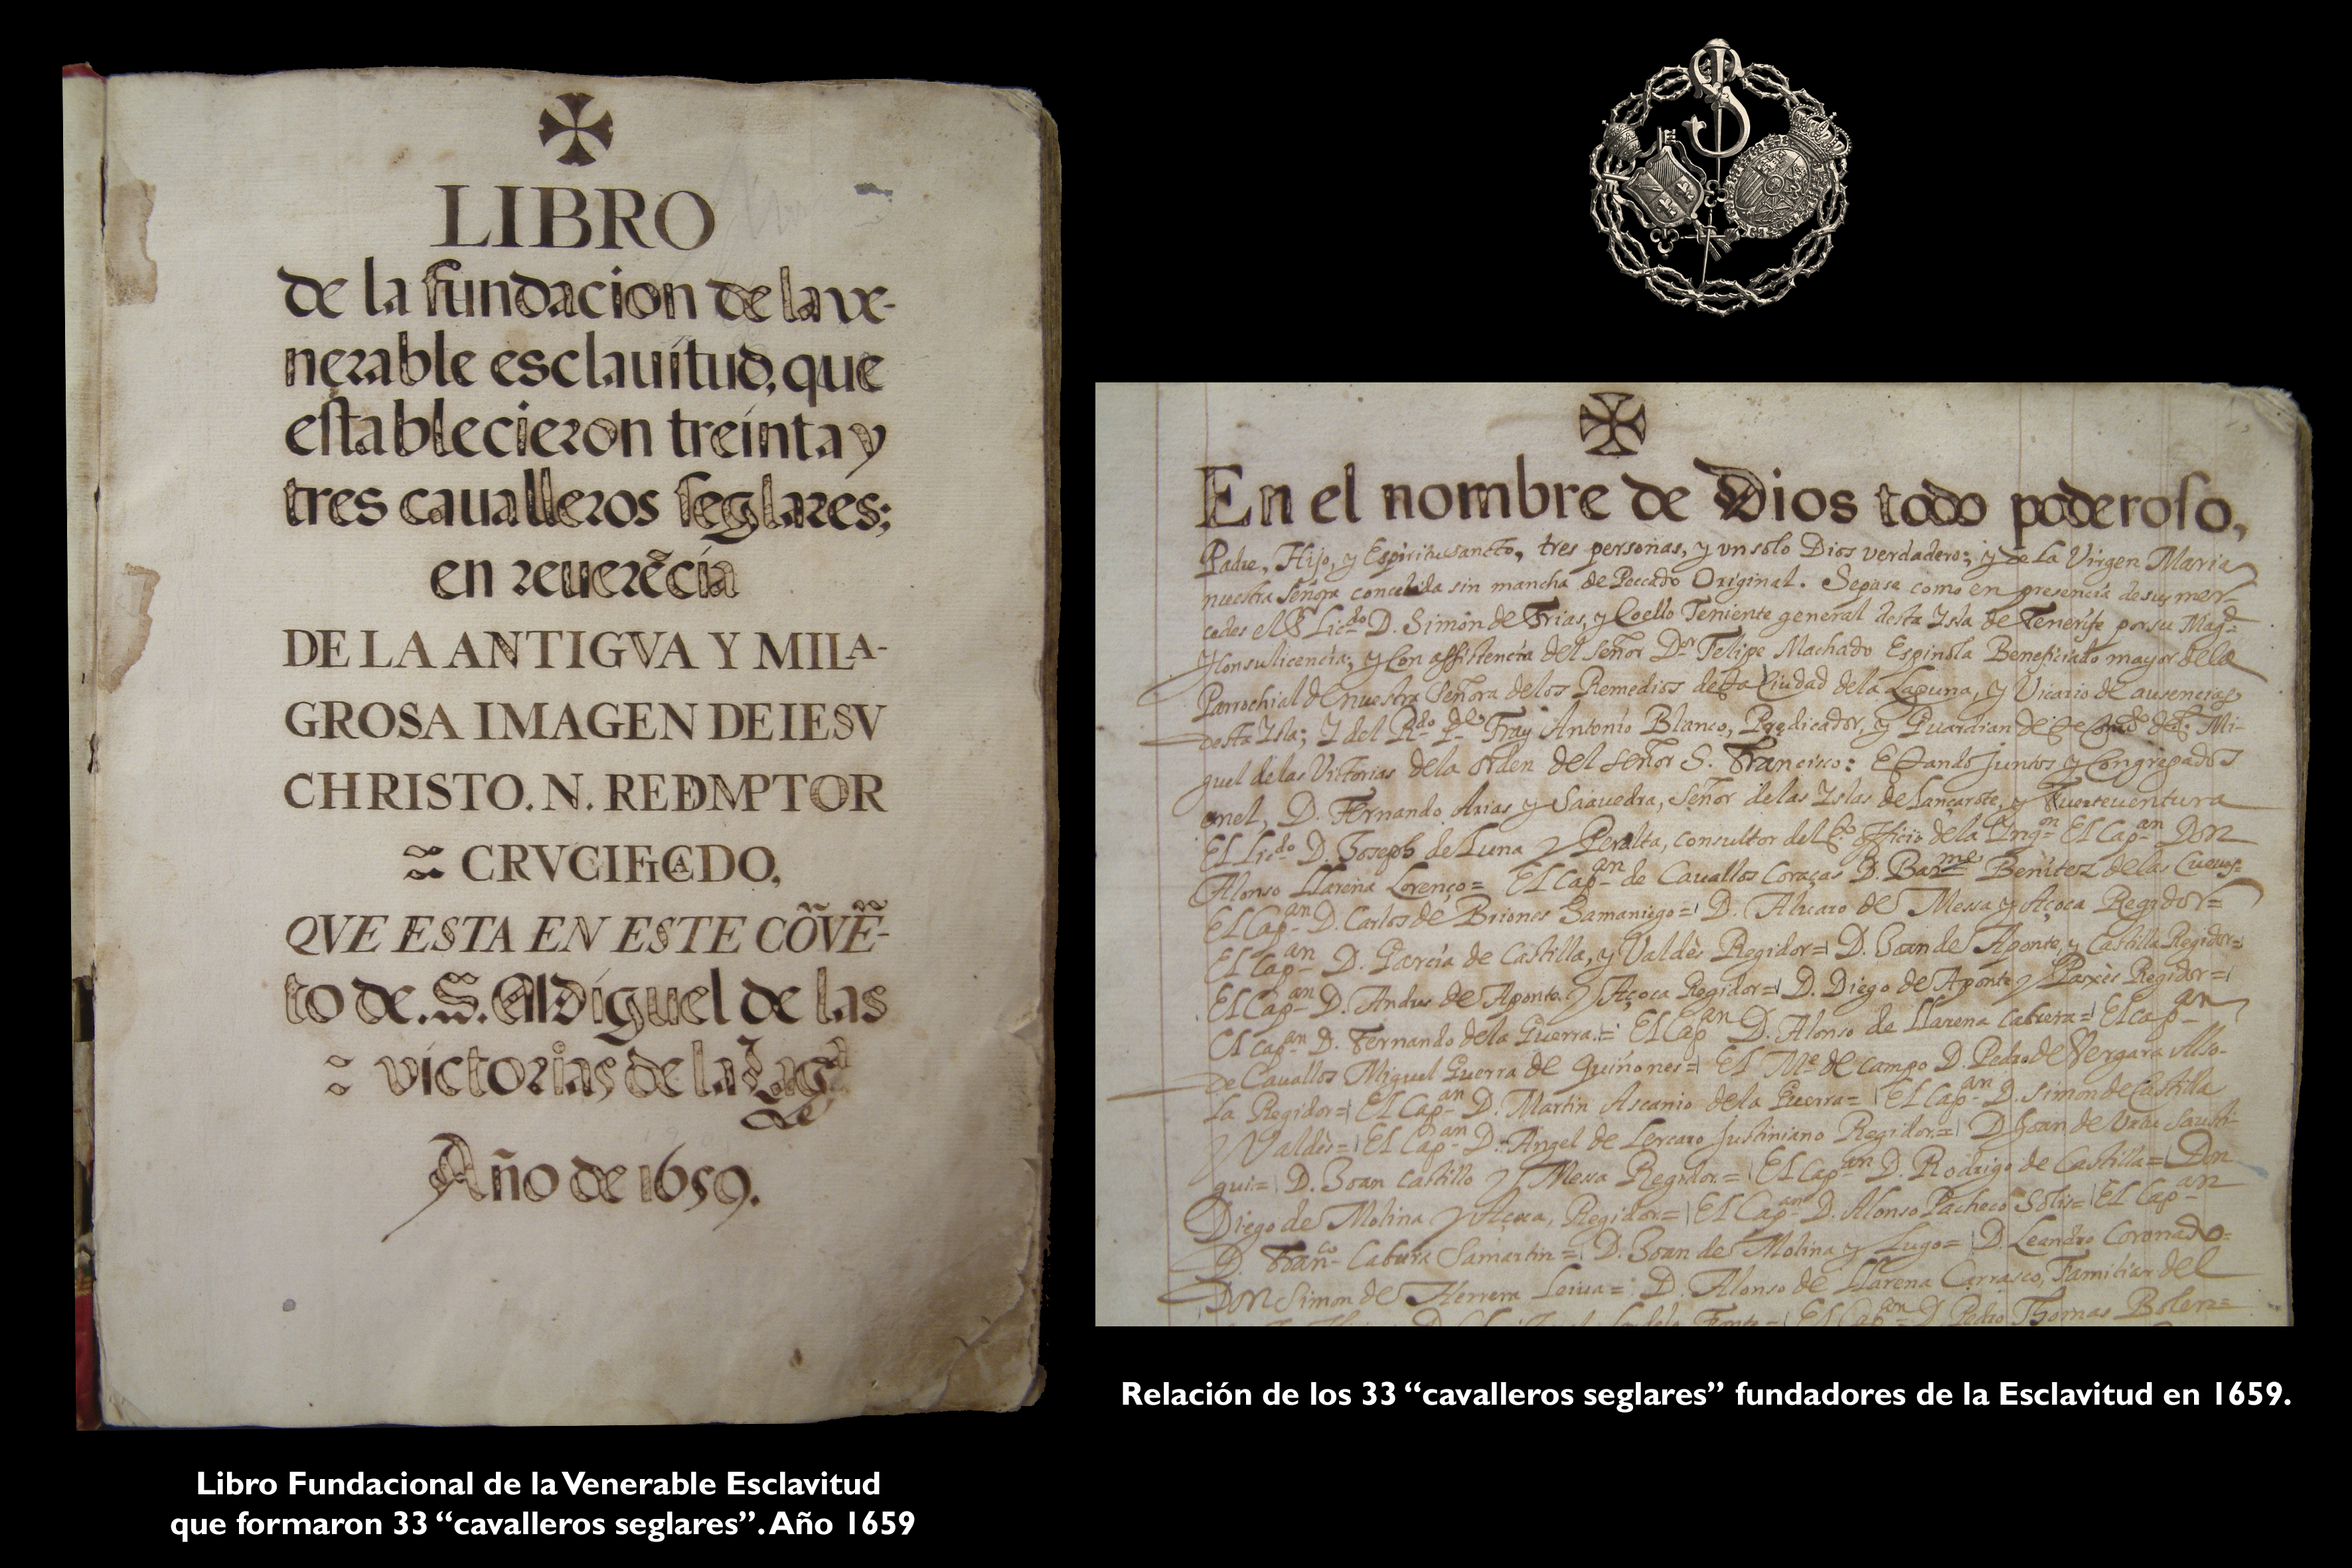 LIBRO
de la fundacion de la ve-
nerable esclauitud, que
establecieron treinta y
tres caualleros seglares;
en reuerẽcia
DE LA ANTIGVA Y MILA-
GROSA IMAGEN DE IESV
CHRISTO. N. REDEMPTOR
CRVCIFICADO,
QVE ESTA EN ESTE CÕVẼ-
to de .S. Miguel de las
victorias de la Lagª
Año de 1659.
Libro Fundacional de la Venerable Esclavitud
que formaron 33 “cavalleros seglares”. Año 1659
En el nombre de Dios todo poderoso,
Padre, Hijo, y Espiritusancto, tres personas, y vn solo Dios verdadero; y de La Virgen Maria
nuestra Señora concebida sin mancha de Peccado Original. Sepase como en presencia de sus mer-
cedes el Sr Licdo D. Simon de Frias, y Coello Teniente general desta Ysla de Tenerife por su Magd
y con su licencia; y con assistencia del señor Dor Felipe Machado Espinola Beneficiado mayor de la
Parrochial de nuestra Señora de los Remedios desta Ciudad de la Laguna, y Vicario de ausencias
desta Ysla; Y del Rdo Pe Fray Antonio Blanco, Predicador, y Guardian de Mi-
guel de las Victorias de la orden del señor S. Francisco: Estando Juntos y Congregados
en el, D. Fernando Arias y Saavedra, señor de las Yslas de Lançarote, y Fuerteventura
El Licdo D. Joseph de Luna y Peralta, consultor del Sto Officio de la Inqon El Capan Don
Alonso Llarena Lorenço= El Capan de Cauallos Coraças D. Barme Benitez de las Cueuas=
El Capan D. Carlos de Briones Samaniego= D. Aluaro de Messa y Açoca Regidor=
El Capan D. Garcia de Castilla, y Valdès Regidor= D. Joan de Aponte, y Castilla Regidor=
El Capan D. Andres de Aponte y Açoca Regidor= D. Diego de Aponte y Paxès Regidor=
El capan D. Fernando de la Guerra= El Capan D. Alonso de Llarena Cabrera= El capan
de Cauallos Miguel Guerra de Quiñones= El Me de campo D. Pedro de Vergara Also-
la Regidor= El Capan D. Martin Ascanio de la Guerra= El Capan D. Simon de Castilla
y Valdès= El Capan D. Angel de Lercaro Justiniano Regidor= D. Joan de
gui= D. Joan Castillo y Messa Regidor= El Capan D. Rodrigo de Castilla= Don
Diego de Molina y Açoca, Regidor= El Capan D. Alonso Pacheco Solis= El Capan
D. Franco Cabrera Samartin= D. Joan de Molina y Lugo= D. Leandro Coronado=
Don Simon de Herrera Leiua= D. Alonso de Llarena Carrasco, Familiar del
Fonte= El Capan D. Pedro Thomas
Relación de los 33 “cavalleros seglares” fundadores de la Esclavitud en 1659.